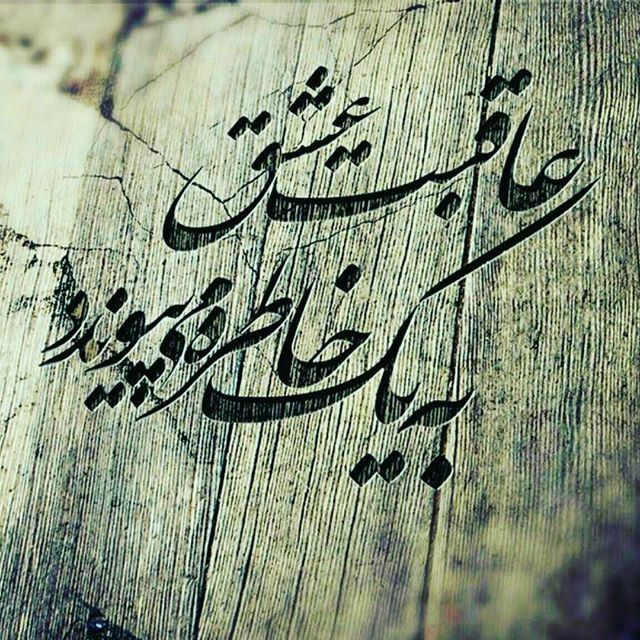 عاقبت عشق
به یک خاطره میپیوندد